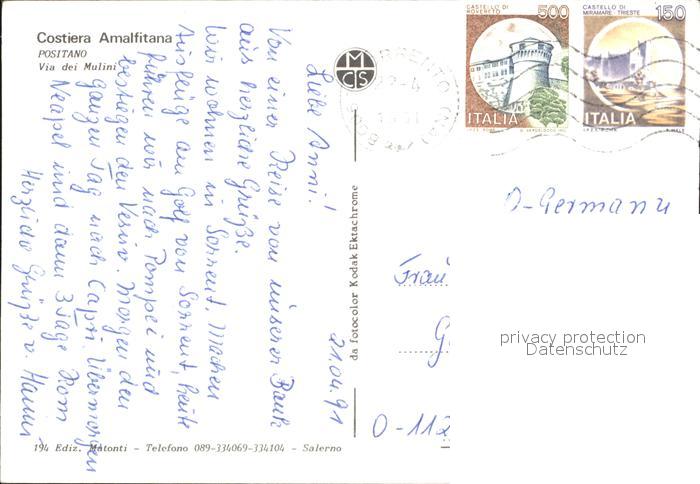 Costiera Amalfitana
POSITANO
Via dei Mulini
21.04.91
Liebe Anni!
Von einer Reise von unserer Bank
aus herzliche Grüße.
Wir wohnen in Sorrent. Machen
Ausflüge am Golf von Sorrent, heute
fahren wir nach Pompei und
besteigen den Vesuv. Morgen den
ganzen Tag nach Capri. Übermorgen
Neapel und dann 3 Tage Rom
Herzliche Grüße v. Hanni
194 Ediz. Matonti - Telefono 089-334069-334104 - Salerno
da fotocolor Kodak Ektachrome
MCS
CASTELLO DI
ROVERETO
500
ITALIA
CASTELLO DI
MIRAMARE - TRIESTE
150
ITALIA
D-Germany
Frau
O-112
privacy protection
Datenschutz